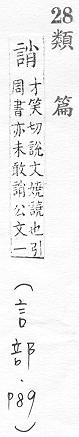 28
類篇
誚
才笑切說文嬈譊也引
周書亦未敢誚公文一
(言部·p89)